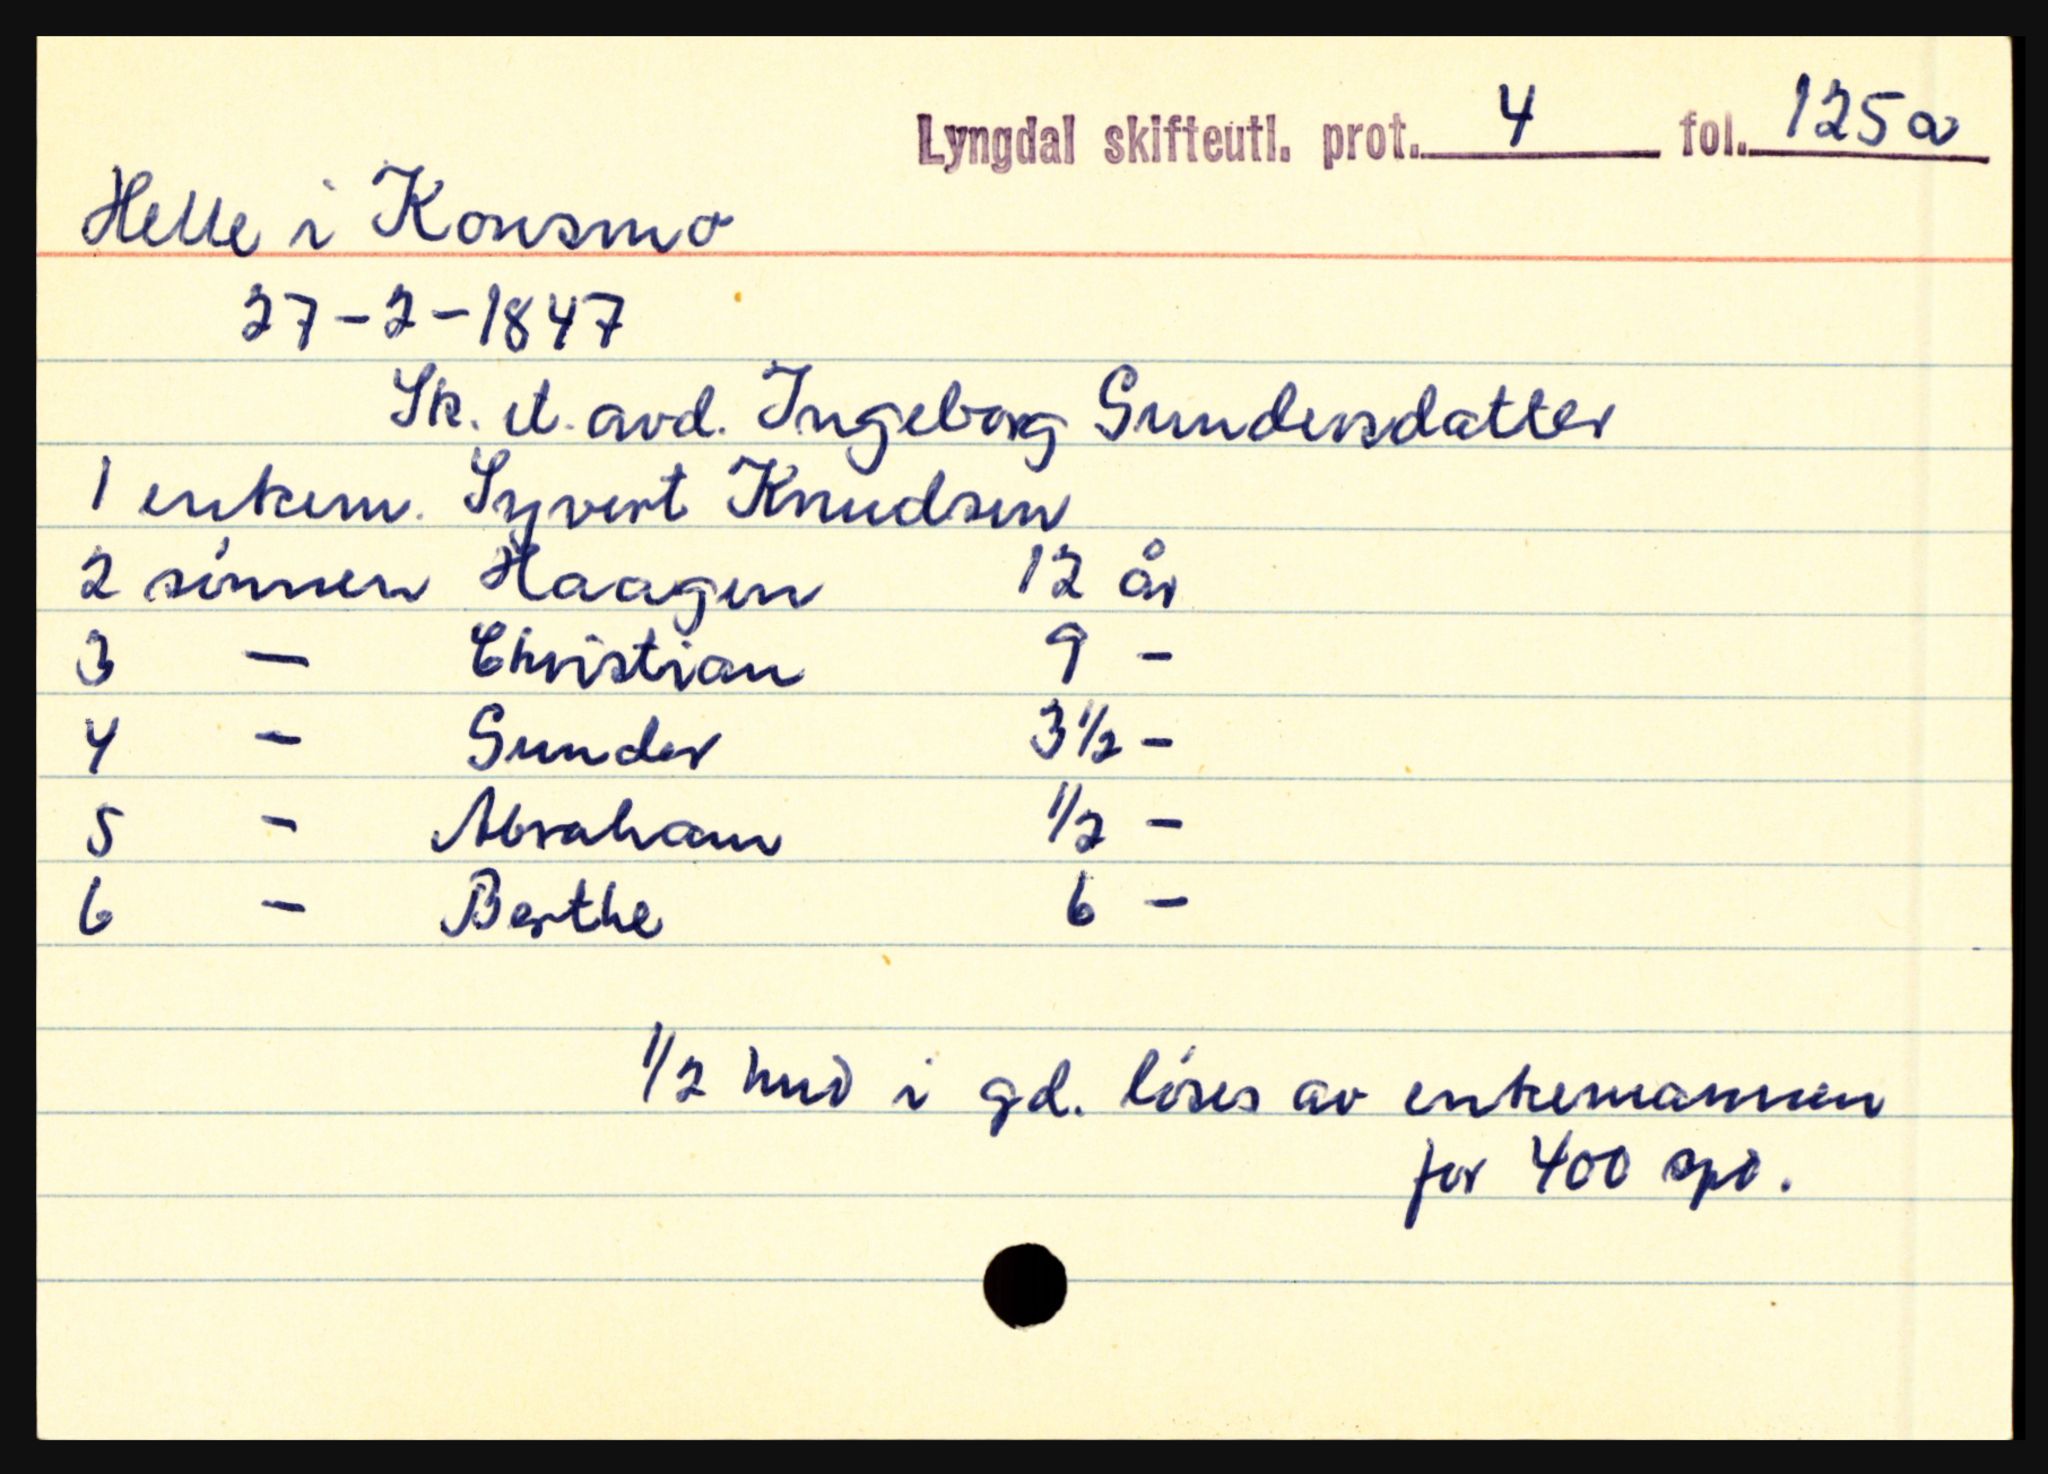 Lyngdal skifteutl. prot. 4 fol. 125a
Helle i Konsmo
27-2-1847
Sk. et. avd. Ingeborg Gundersdatter
1 enkem. Syvert Knudsen
2 sønnen Haagen 12 år
3 — Christian 9 -
4 - Gunder 3 1/2 -
5 - Abraham 1/2 -
6 - Berthe 6 -
1/2 hud i gd. løses av enkemannen
for 400 spd.